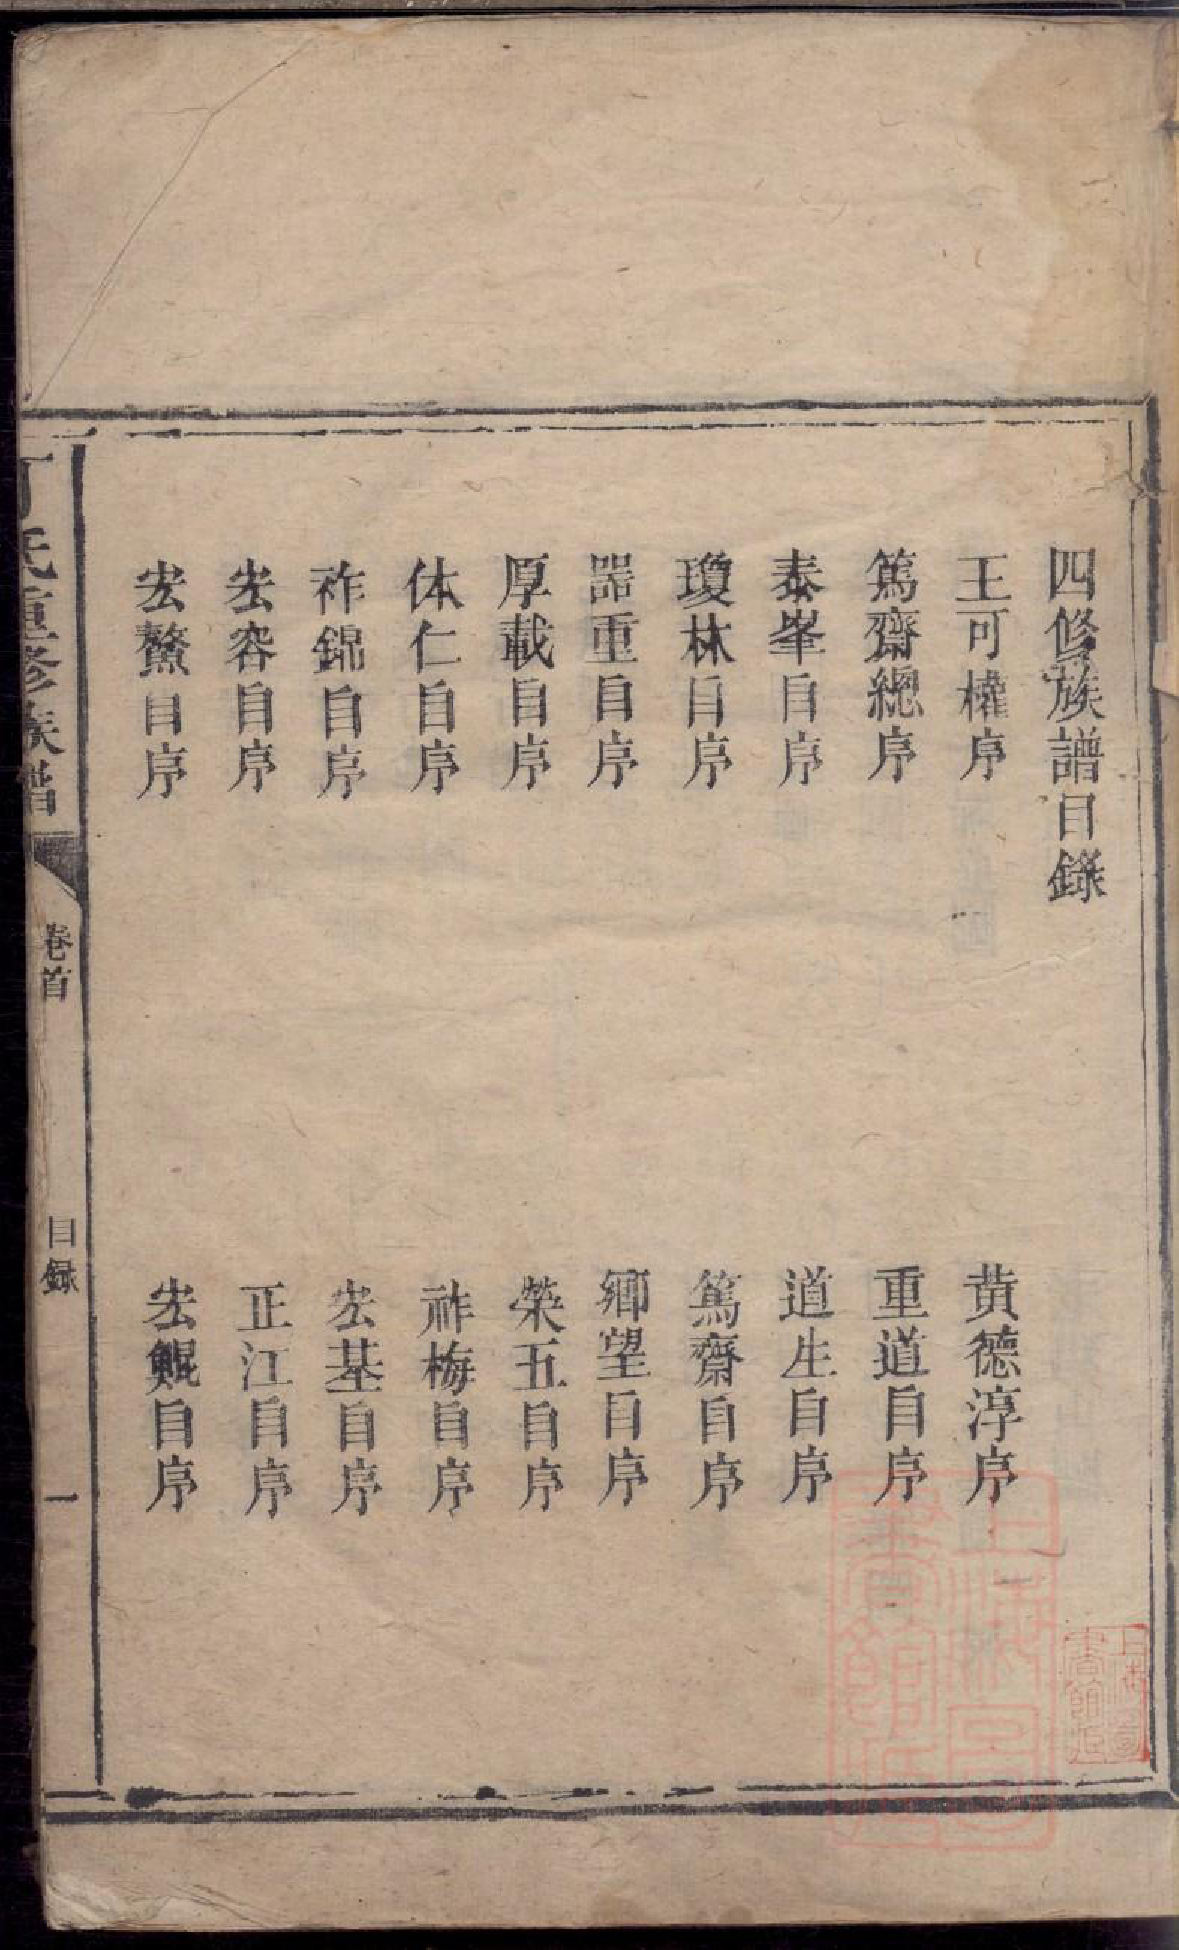 四修族譜目錄
王可權序
黄德淳序
篤齋總序
重道自序
泰峯自序
道生自序
瓊林自序
篤齋自序
器重自序
卿望自序
厚載自序
榮五自序
体仁自序
祚梅自序
祚錦自序
宏基自序
宏容自序
正江自序
宏鰲自序
宏鯤自序
丁氏重修族譜
卷首
目録
一